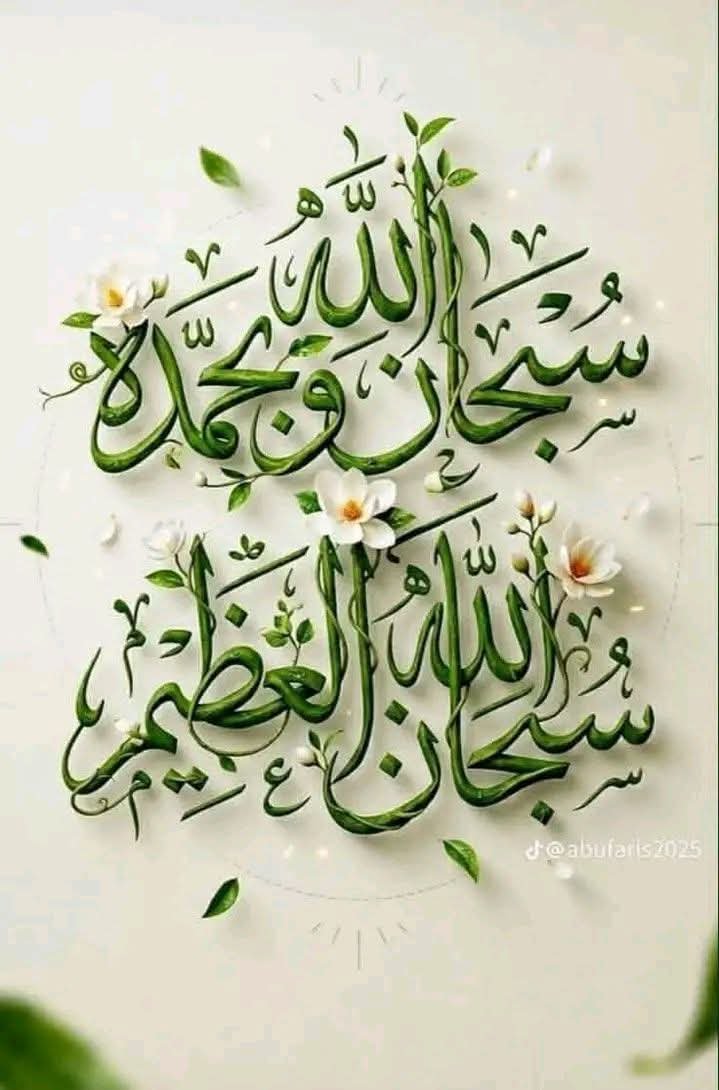 سُبْحَانَ اللَّهِ وَبِحَمْدِهِ
سُبْحَانَ اللَّهِ الْعَظِيمِ
@abufaris2025